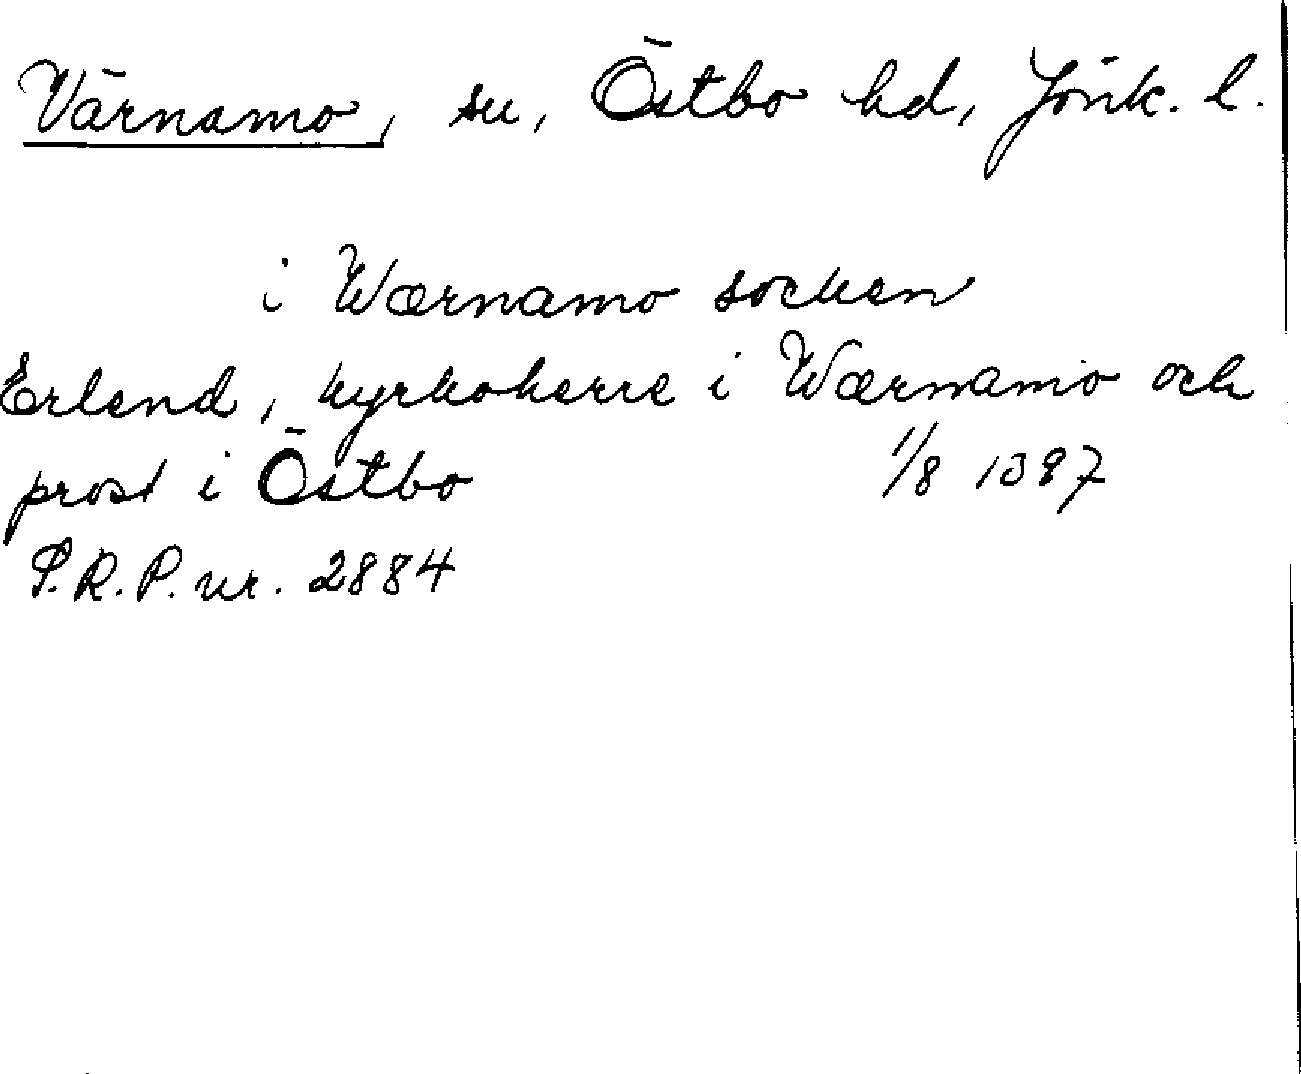 Värnamo, sn, Östbo hd, Jönk. l.
i Wærnamo socken
Erlend, kyrkoherre i Wærnamo och
prost i Östbo 1/8 1397
S.R.P. nr. 2884